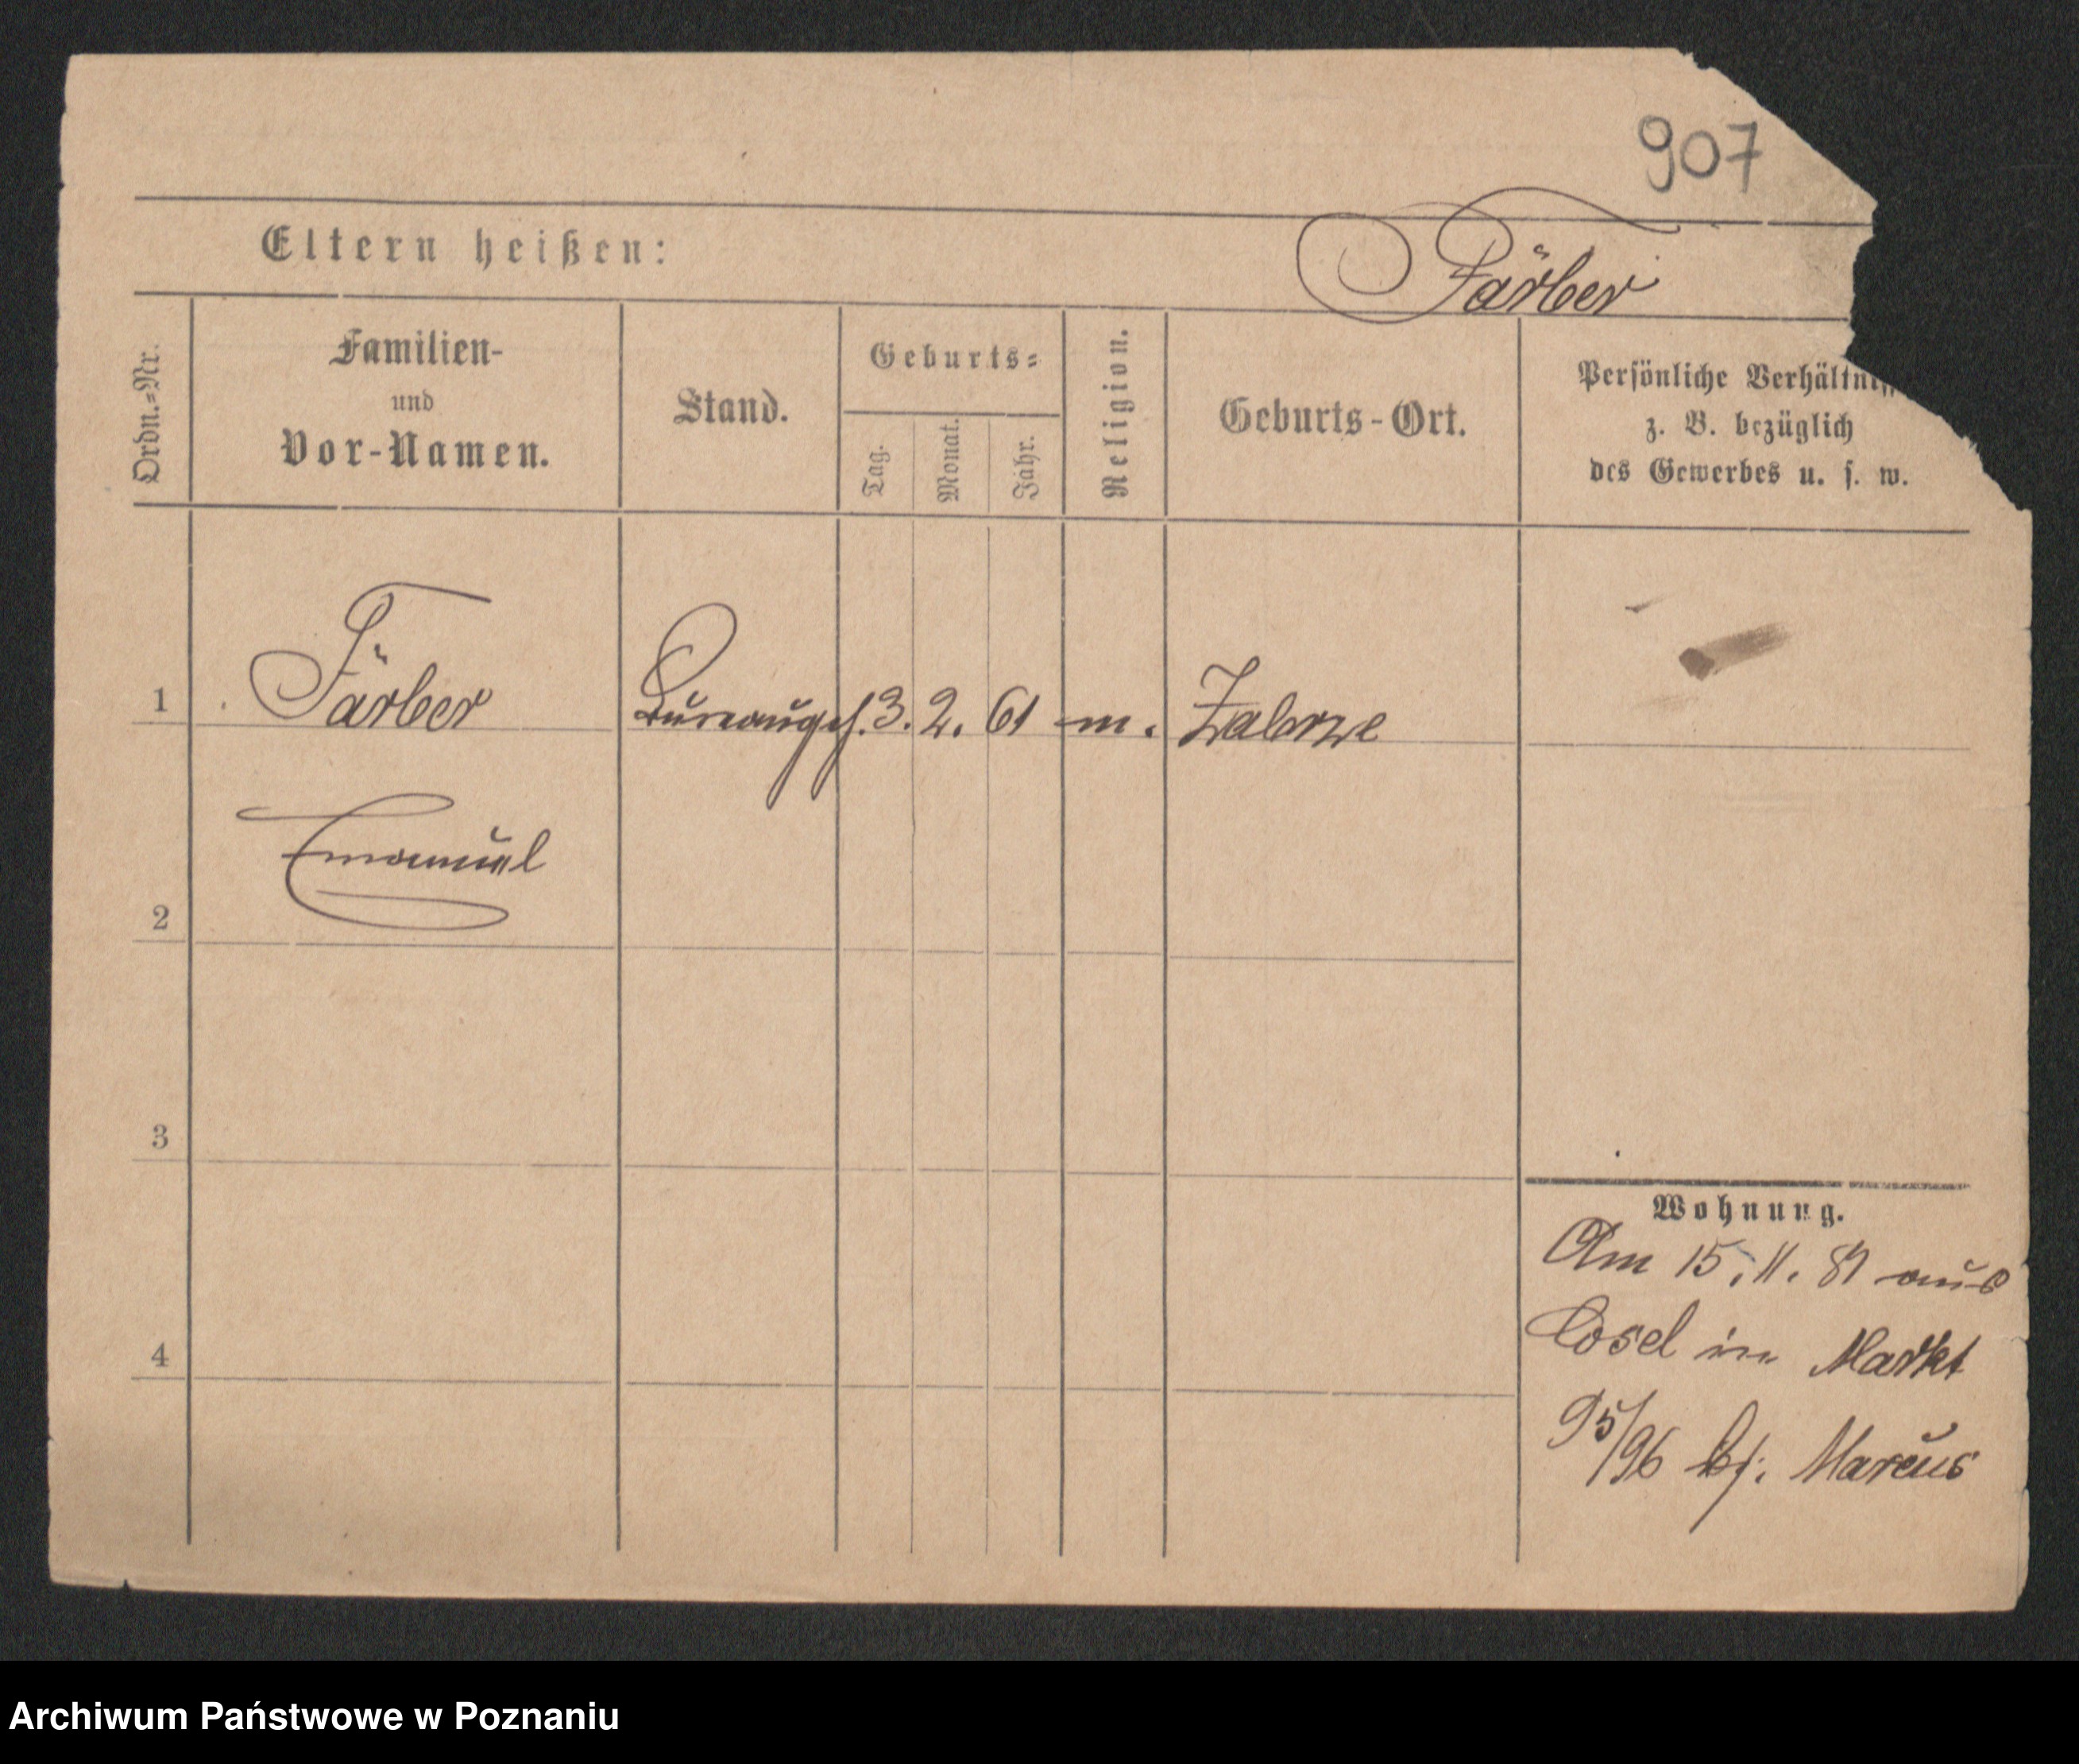 907
Eltern heißen:
Färber
Ordn.-Nr.
Familien-
und
Vor-Namen.
Stand.
Geburts-
Tag.
Monat.
Jahr.
Religion.
Geburts-Ort.
Persönliche
z. B. bezüglich
des Gewerbes u. s. w.
1 Färber Bureaugeh. 3. 2. 61 m. Zabrze
Emanuel
2
3
4
Wohnung.
Am 15. 11. 81 aus
Cosel in Markt
95/96 bei Marcus
Archiwum Państwowe w Poznaniu